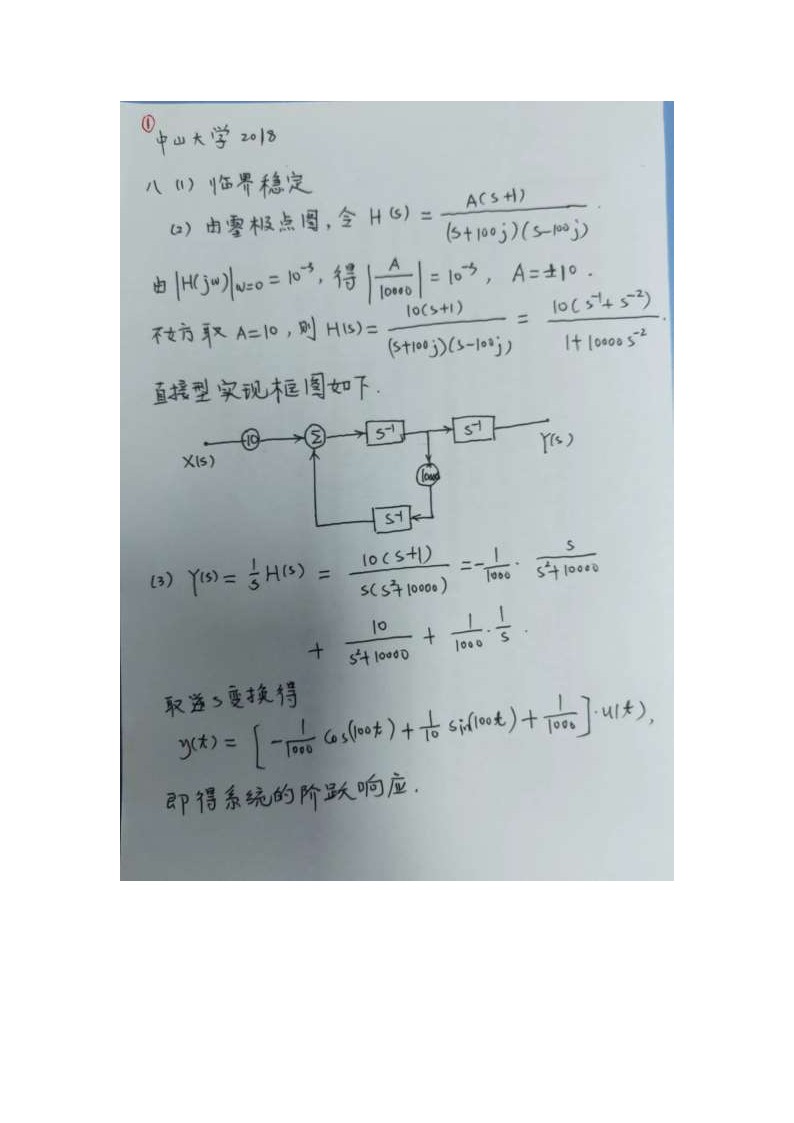 ①
中山大学 2018
八 (1) 临界稳定
(2) 由零极点图, 令 H(s) = A(s+1) / (s+100j)(s-100j) .
由 |H(jw)|w=0 = 10⁻³, 得 |A/10000| = 10⁻³, A=±10 .
不妨取 A=10, 则 H(s) = 10(s+1) / (s+100j)(s-100j) = 10(s⁻¹+s⁻²) / 1+10000s⁻² .
直接型实现框图如下.
X(s) 10 Σ s⁻¹ s⁻¹ Y(s)
10000
s⁻¹
(3) Y(s) = 1/s H(s) = 10(s+1) / s(s²+10000) = -1/1000 · s / s²+10000
+ 10 / s²+10000 + 1/1000 · 1/s .
取逆s变换得
y(t) = [ -1/1000 cos(100t) + 1/10 sin(100t) + 1/1000 ] · u(t),
即得系统的阶跃响应.